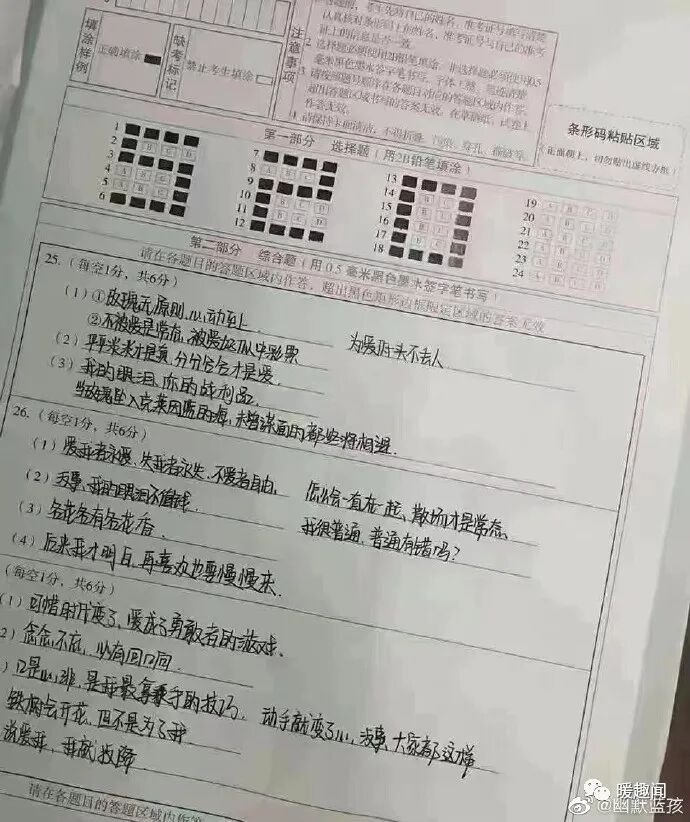 填涂样例
正确填涂
缺考标记
禁止考生填涂
注意事项
条形码粘贴区域
(正面朝上,切勿贴出虚线方框)
第一部分 选择题(用2B铅笔填涂)
1 7 13 19
2 8 14 20
3 9 15 21
4 10 16 22
5 11 17 23
6 12 18 24
第二部分 综合题(用0.5毫米黑色墨水签字笔书写)
请在各题目的答题区域内作答,超出黑色矩形边框限定区域的答案无效
25.(每空1分,共6分)
(1)①玫瑰无原则,心动至上 为爱盾头不去人
②不被爱是常态,被爱故
(2)平平 才是真,分分合合才是爱.
(3)我的眼泪,你的战利品.
当玫瑰坠入克莱因蓝的海,未曾谋面的都终将相遇.
26.(每空1分,共6分)
(1)爱我者永爱、失我者永失、不爱者自由, 怎么会一直在一起、散场才是常态、
(2)没事、我的眼泪不值钱. 我很普通,普通有错吗?
(3)各花各有各花香.
(4)后来我才明白,再喜欢也要慢慢来.
(每空1分,共6分)
1)可惜时代变了,爱成了勇敢者的游戏、
2)念念不忘,必有回口向
)口是心非,是我最拿手的技巧, 动手就变了心,没事、大家都这样
铁树会开花,但不是为了我
说爱我,我就投降
请在各题目的答题区域内作答
暖趣闻
@幽默蓝孩